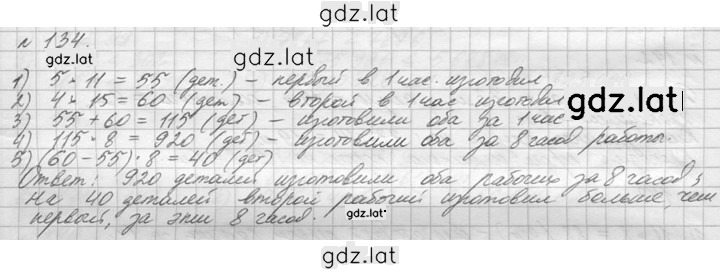 gdz.latі
№ 134.
gdz.latі
1) 5 · 11 = 55 (дет.) – первый в 1 час. изготовил
2) 4 · 15 = 60 (дет) – второй в 1 час изготовил
gdz.latі
3) 55 + 60 = 115 (дет) – изготовили оба за 1 час
4) 115 · 8 = 920 (дет) – изготовили оба за 8 часов работы.
5) (60 – 55) · 8 = 40 (дет)
Ответ: 920 деталей изготовили оба рабочих за 8 часов;
На 40 деталей второй рабочий изготовил больше, чем
gdz.latі
первый, за эти 8 часов.
gdz.latі